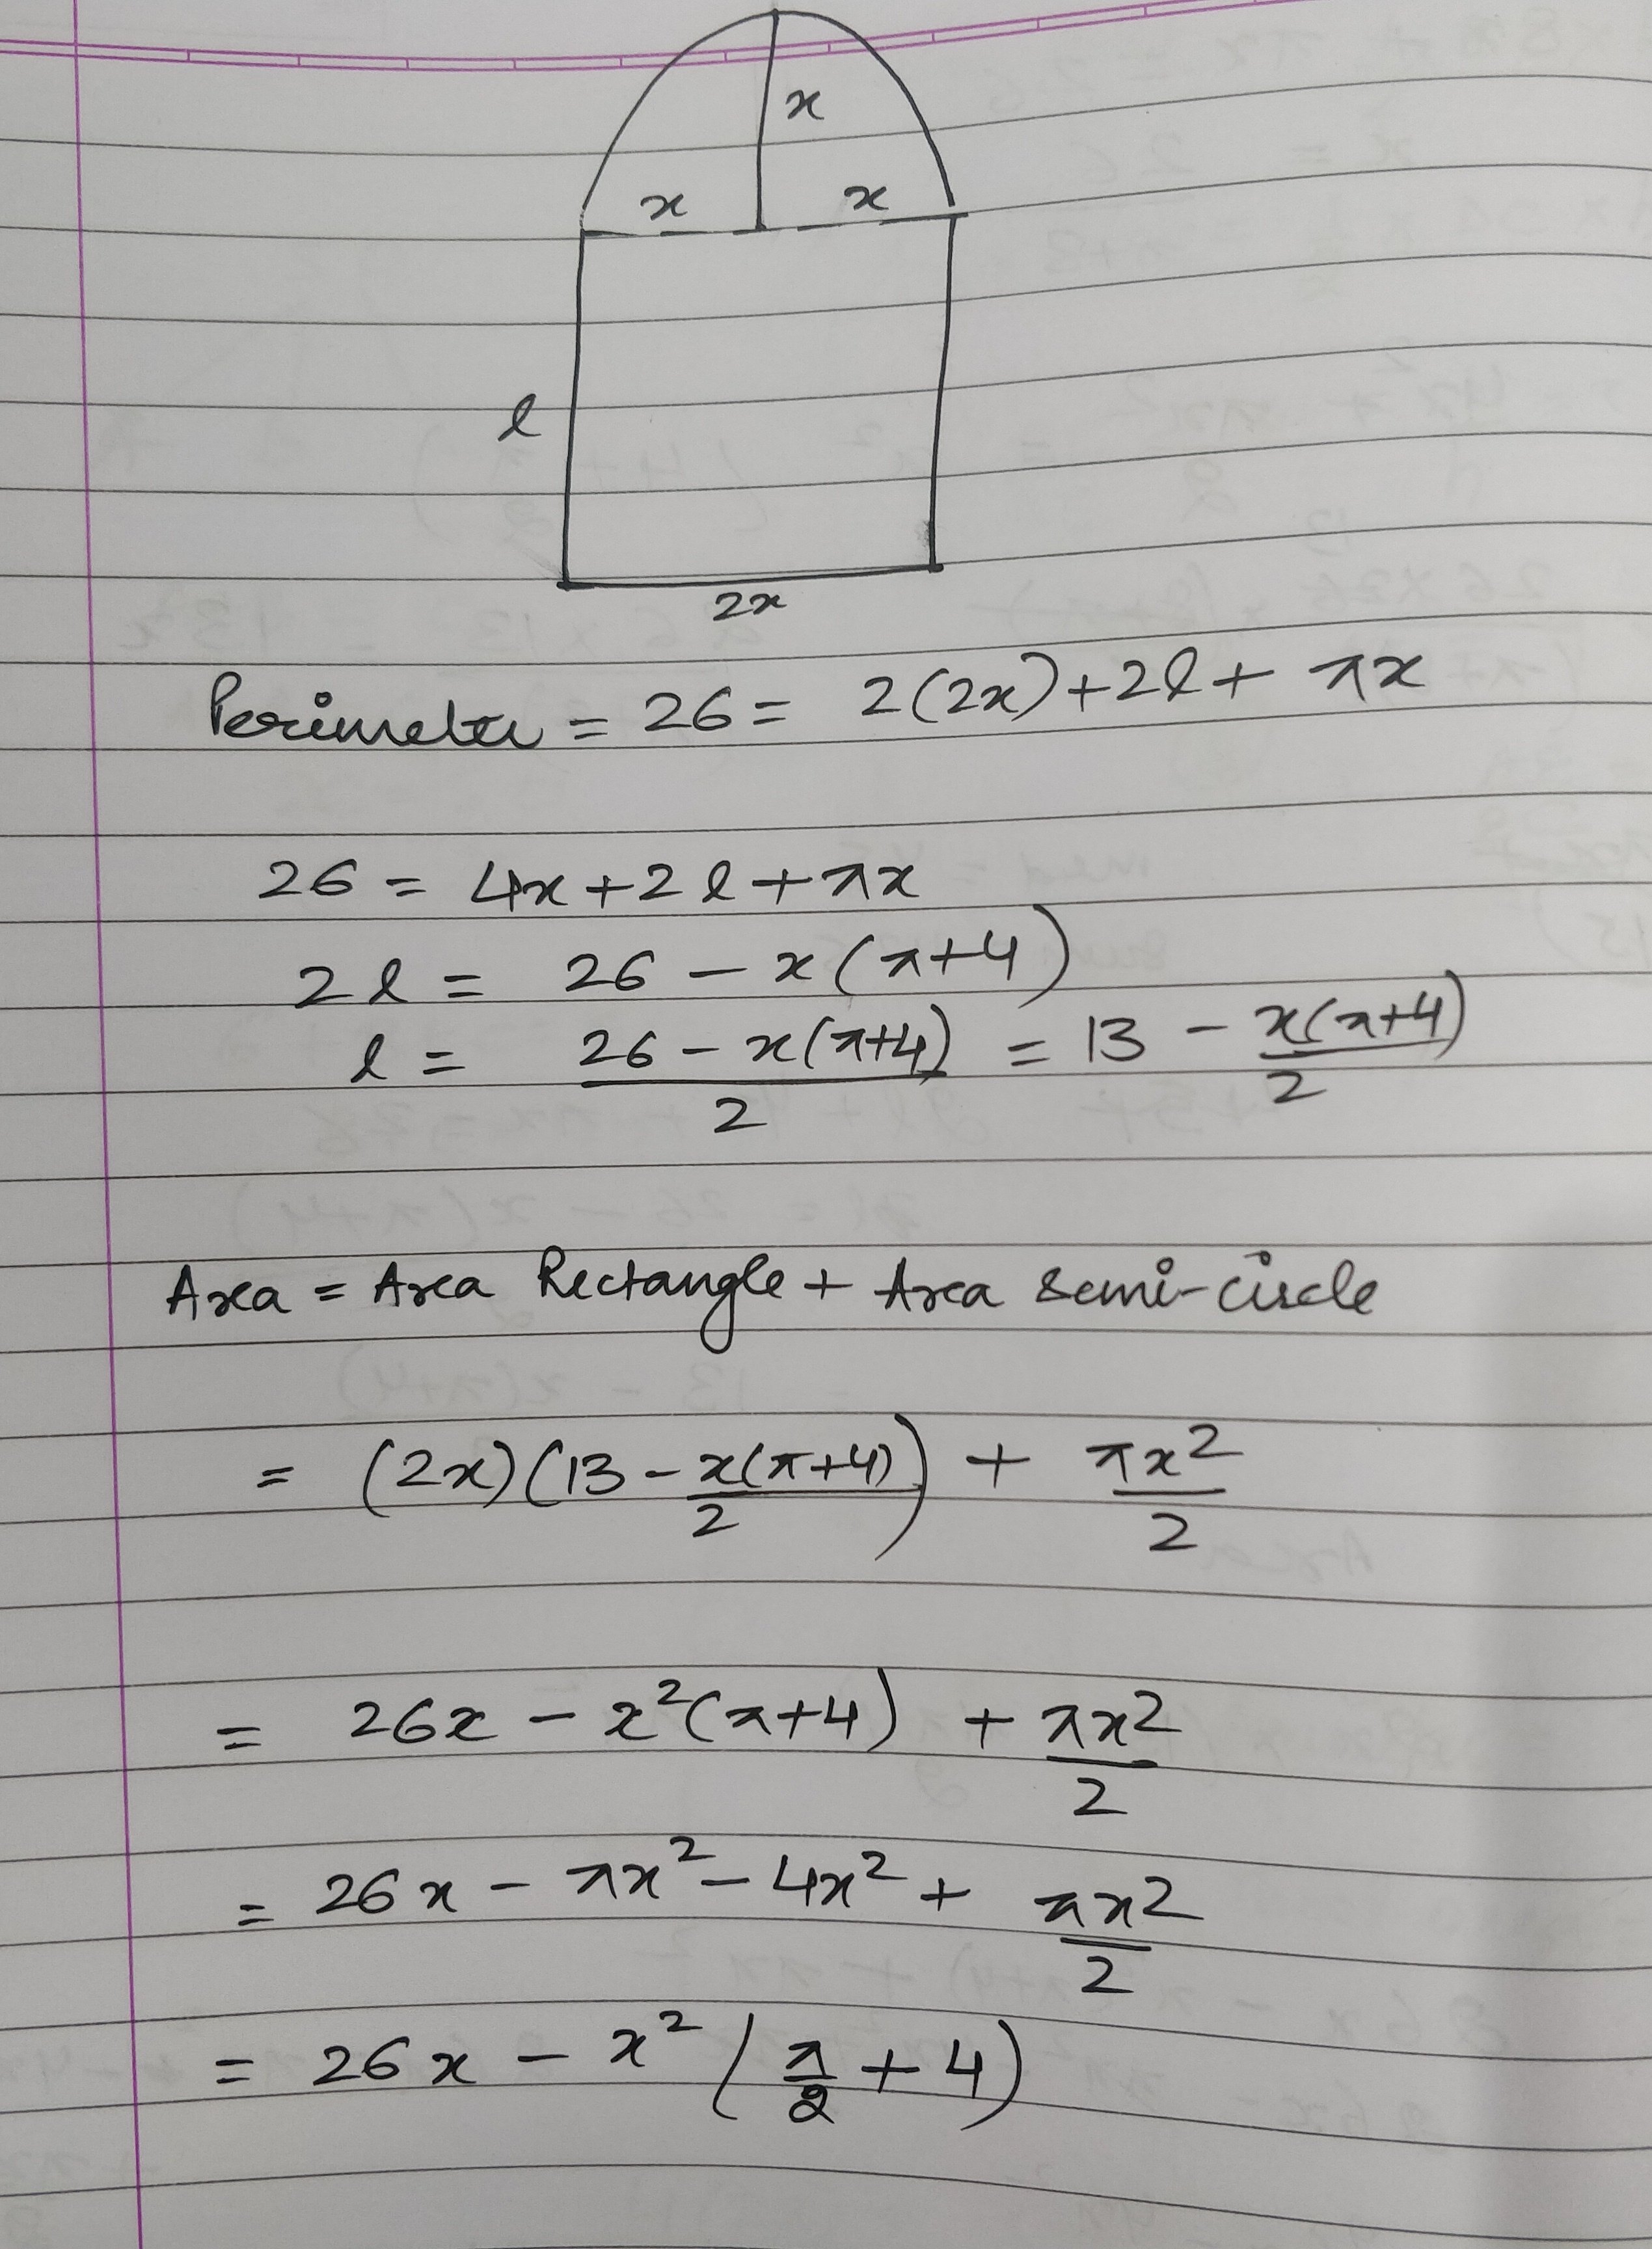 x
x x
l
2x
Perimeter = 26 = 2(2x)+2l+ πx
26 = 4x+2l+πx
2l = 26 - x(π+4)
l = (26 - x(π+4))/2 = 13 - x(π+4)/2
Area = Area Rectangle + Area semi-circle
= (2x)(13 - x(π+4)/2) + πx²/2
= 26x - x²(π+4) + πx²/2
= 26x - πx² - 4x² + πx²/2
= 26x - x²(π/2 + 4)